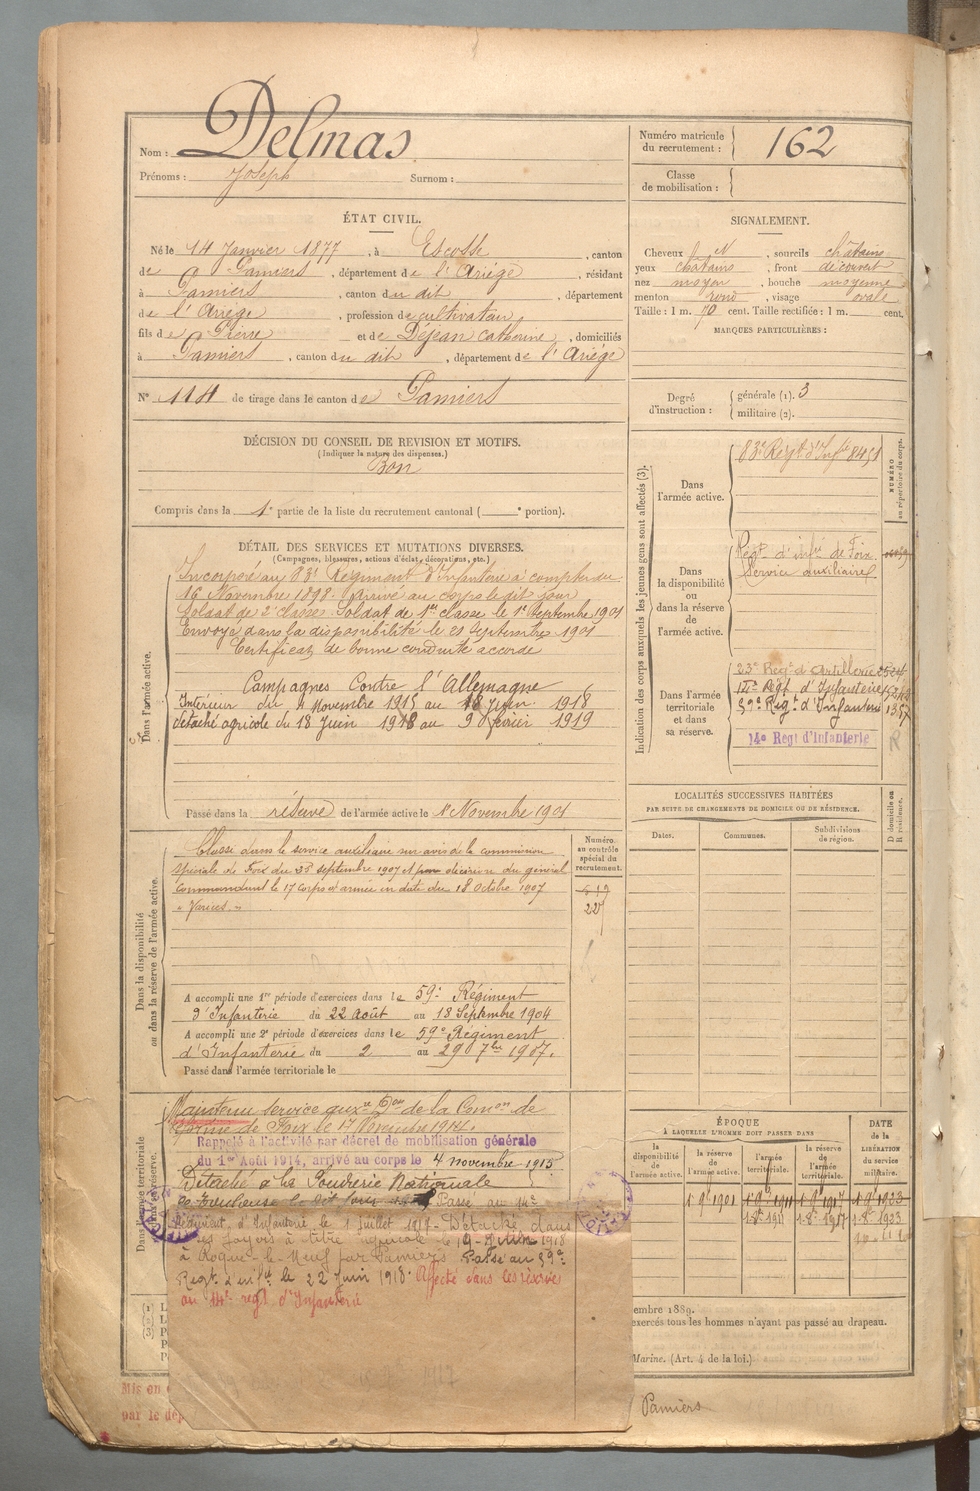 Nom : Delmas
Prénoms : Joseph Surnom :
Numéro matricule du recrutement : 162
Classe de mobilisation :
ÉTAT CIVIL.
Né le 14 Janvier 1877, à Escosse, canton
de Pamiers, département de l'Ariège, résidant
à Pamiers, canton du dit, département
de l'Ariège, profession de cultivateur,
fils de Pierre et de Déjean Catherine, domiciliés
à Pamiers, canton du dit, département de l'Ariège
N° 114 de tirage dans le canton de Pamiers
SIGNALEMENT.
Cheveux N, sourcils châtains
yeux chatains, front découvert
nez moyen, bouche moyenne
menton rond, visage ovale
Taille : 1 m. 70 cent. Taille rectifiée : 1 m. cent.
MARQUES PARTICULIÈRES :
Degré d'instruction :
générale (1). 3
militaire (2).
DÉCISION DU CONSEIL DE REVISION ET MOTIFS.
(Indiquer la nature des dispenses.)
Bon
Compris dans la 1e partie de la liste du recrutement cantonal ( e portion).
DÉTAIL DES SERVICES ET MUTATIONS DIVERSES.
(Campagnes, blessures, actions d'éclat, décorations, etc.)
Dans l'armée active.
Incorporé au 83e Régiment d'Infanterie à compter du
16 Novembre 1898. Arrivé au corps le dit jour
Soldat de 2e classe. Soldat de 1re classe le 1er Septembre 1901
Envoyé dans la disponibilité le 21 Septembre 1901
Certificat de bonne conduite accordé
Campagnes Contre l'Allemagne
Intérieur du 4 Novembre 1915 au 18 Juin 1918
détaché agricole du 18 Juin 1918 au 9 février 1919
Passé dans la réserve de l'armée active le 1er Novembre 1901
Indication des corps auxquels les jeunes gens sont affectés (3).
NUMÉRO au répertoire du corps.
Dans l'armée active.
83e Régt d'Infie 8451
Dans la disponibilité ou dans la réserve de l'armée active.
Régt d'infie de Foix
Service auxiliaire
Dans l'armée territoriale et dans sa réserve.
23e Regt d'Artillerie
Regt d'Infanterie
59e Regt d'Infanterie
14e Regt d'Infanterie
R
LOCALITÉS SUCCESSIVES HABITÉES
PAR SUITE DE CHANGEMENTS DE DOMICILE OU DE RÉSIDENCE.
D domicile ou R résidence.
Dates. Communes. Subdivisions de région.
Dans la disponibilité ou dans la réserve de l'armée active.
Numéro au contrôle spécial du recrutement.
Classé dans le service auxiliaire sur avis de la commission
spéciale de Foix du 23 septembre 1907 et décision du général
Commandant le 17 corps d'armée en date du 18 Octobre 1907
"Varices."
22
A accompli une 1re période d'exercices dans le 59e Régiment
d'Infanterie du 22 Août au 18 Septembre 1904
A accompli une 2e période d'exercices dans le 59e Régiment
d'Infanterie du 2 au 29 7bre 1907.
Passé dans l'armée territoriale le
Dans l'armée territoriale
Maintenu service auxre Don de la Comon de
réforme de Foix le 17 Novembre 1914.
Rappelé à l'activité par décret de mobilisation générale
du 1er Août 1914, arrivé au corps le 4 novembre 1915
Détaché à la Poudrerie Nationale
de Toulouse le dit jour Passé au 14e
Régiment d'Infanterie le 1 Juillet 1917. Détaché dans
ses foyers à titre agricole le 1918
à Roque par Pamiers Passé au 59e
Regt d'infie le 22 Juin 1918. Affecté dans les réserves
au 14e regt d'Infanterie
ÉPOQUE
À LAQUELLE L'HOMME DOIT PASSER DANS
la disponibilité de l'armée active.
la réserve de l'armée active.
l'armée territoriale.
la réserve de l'armée territoriale.
DATE de la LIBÉRATION du service militaire.
embre 1889.
exercés tous les hommes n'ayant pas passé au drapeau.
Marine. (Art. 4 de la loi.)
Mis en
par le dép
Pamiers